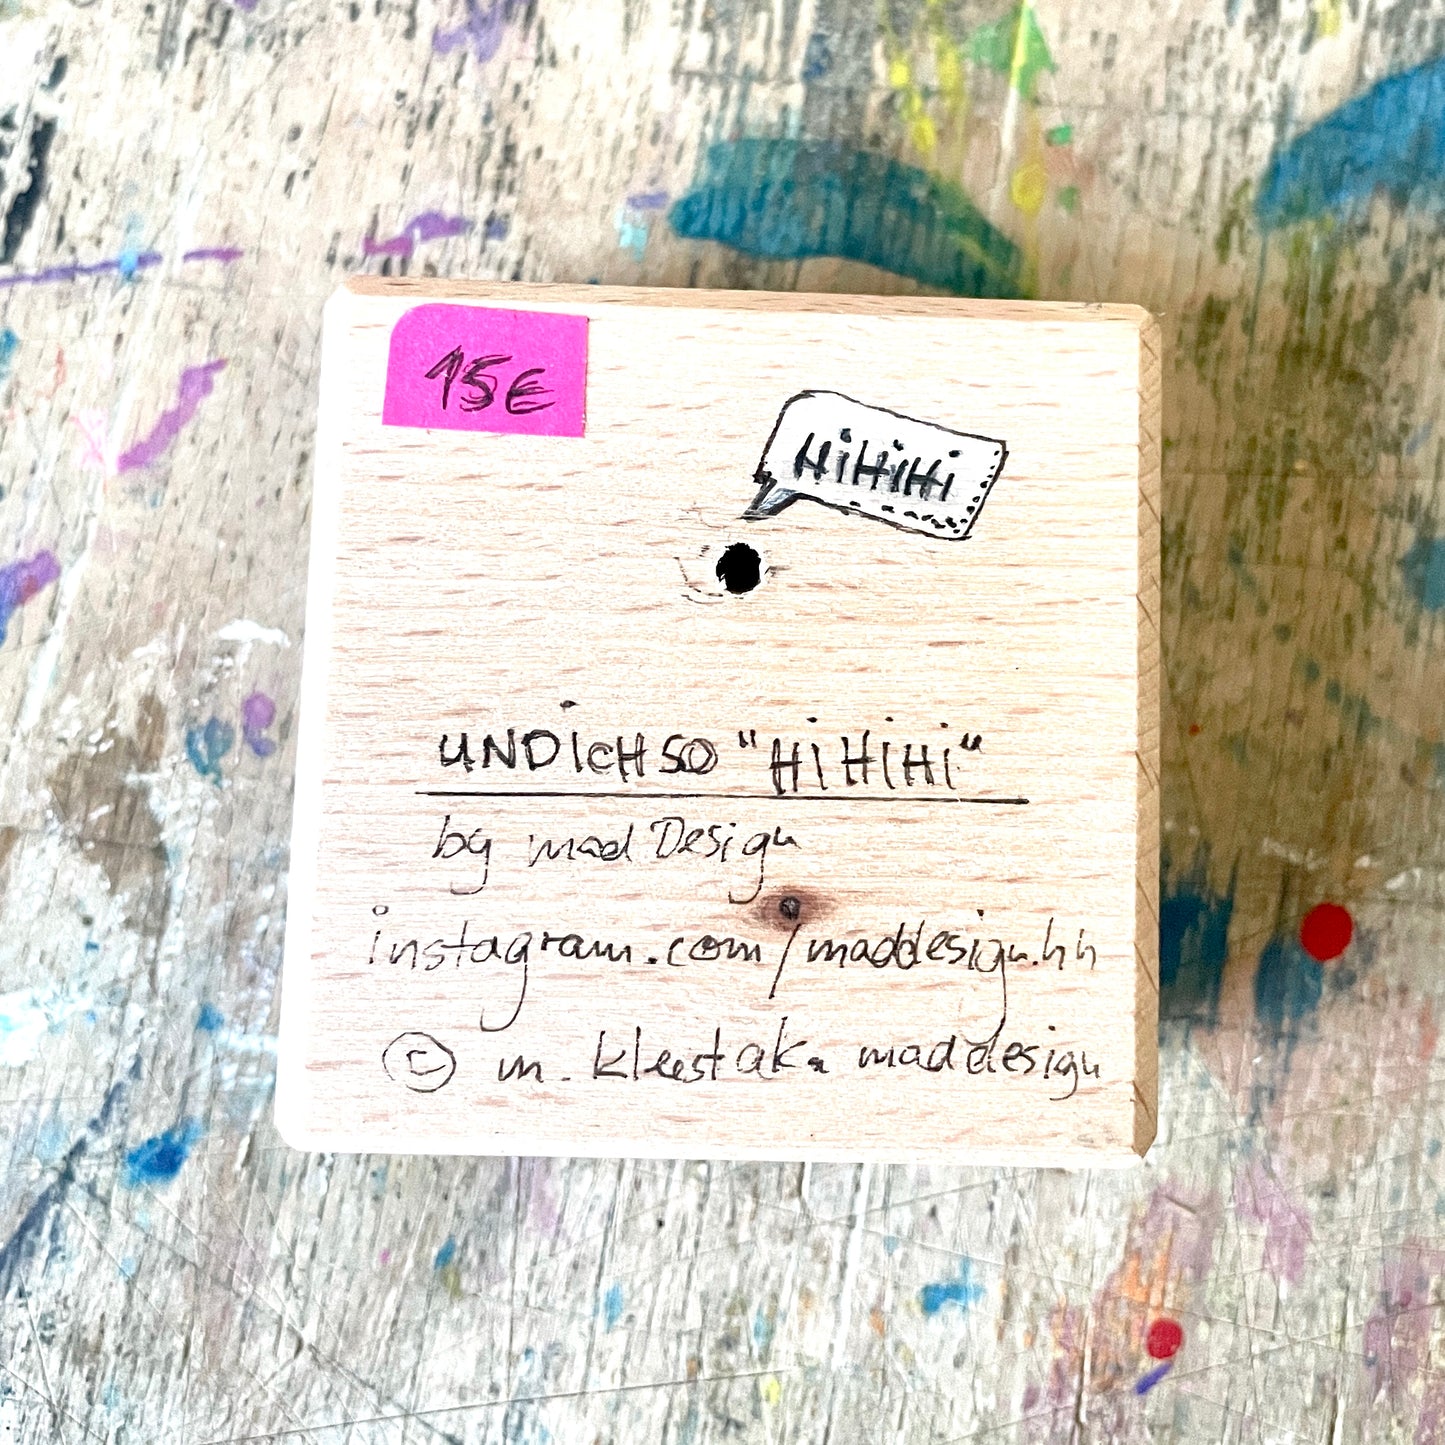 15€
HiHiHi
UNDiCHSO "HiHiHi"
by mad Design
instagram.com/maddesign.hh
© m. kleestak maddesign